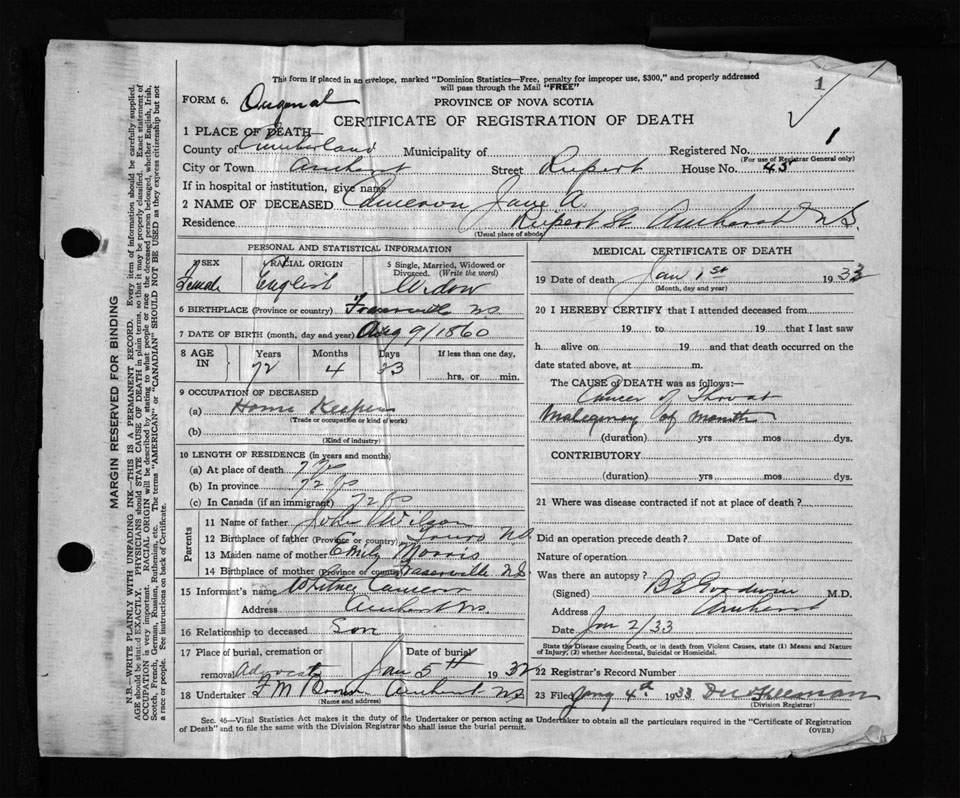 This form if placed in an envelope, marked "Dominion Statistics—Free, penalty for improper use, $300," and properly addressed
will pass through the Mail "FREE"
1
FORM 6. Original
PROVINCE OF NOVA SCOTIA
CERTIFICATE OF REGISTRATION OF DEATH
1 PLACE OF DEATH—
Registered No. 1
(For use of Registrar General only)
County of Cumberland Municipality of
City or Town Amherst Street Rupert House No. 45
If in hospital or institution, give name
2 NAME OF DECEASED Cameron Jane A.
Residence Rupert St Amherst N.S.
(Usual place of abode)
PERSONAL AND STATISTICAL INFORMATION
3 SEX Female
4 RACIAL ORIGIN English
5 Single, Married, Widowed or Divorced. (Write the word) Widow
6 BIRTHPLACE (Province or country) Fraserville N.S.
7 DATE OF BIRTH (month, day and year) Aug 9/1860
8 AGE IN Years 72 Months 4 Days 23 If less than one day, hrs. or min.
9 OCCUPATION OF DECEASED
(a) Home Keeper
(Trade or occupation or kind of work)
(b)
(Kind of industry)
10 LENGTH OF RESIDENCE (in years and months)
(a) At place of death 7 yrs
(b) In province 72 yrs
(c) In Canada (if an immigrant) 72 yrs
Parents
11 Name of father John Wilson
12 Birthplace of father (Province or country) N.S.
13 Maiden name of mother Emily Morris
14 Birthplace of mother (Province or country) Fraserville N.S.
15 Informant's name Whitney Cameron
Address Amherst N.S.
16 Relationship to deceased Son
17 Place of burial, cremation or removal Advocate Date of burial Jan 5th 1932
18 Undertaker Amherst N.S.
(Name and address)
MEDICAL CERTIFICATE OF DEATH
19 Date of death Jan 1st 1933
(Month, day and year)
20 I HEREBY CERTIFY that I attended deceased from
19 to 19 that I last saw
h alive on 19 and that death occurred on the
date stated above, at m.
The CAUSE OF DEATH was as follows:—
Cancer of Throat
Malignancy of mouth
(duration) yrs mos dys.
CONTRIBUTORY
(duration) yrs mos dys.
21 Where was disease contracted if not at place of death?
Did an operation precede death? Date of
Nature of operation
Was there an autopsy?
(Signed) B E Goodwin M.D.
Address Amherst
Date Jan 2/33
State the Disease causing Death, or in death from Violent Causes, state (1) Means and Nature
of Injury, (2) whether Accidental, Suicidal or Homicidal.
22 Registrar's Record Number
23 Filed Jany 4th 1933
(Division Registrar)
Sec. 46—Vital Statistics Act makes it the duty of the Undertaker or person acting as Undertaker to obtain all the particulars required in the "Certificate of Registration
of Death" and to file the same with the Division Registrar who shall issue the burial permit.
(OVER)
MARGIN RESERVED FOR BINDING
N.B.—WRITE PLAINLY WITH UNFADING INK—THIS IS A PERMANENT RECORD. Every item of information should be carefully supplied.
AGE should be stated EXACTLY. PHYSICIANS should STATE CAUSE OF DEATH in plain terms, so that it may be properly classified. Exact statement of
OCCUPATION is very important. RACIAL ORIGIN will be described by stating to what people or race the deceased person belonged, whether English, Irish,
Scotch, French, German, Russian, Ruthenian, etc. The terms "AMERICAN" or "CANADIAN" SHOULD NOT BE USED as they express citizenship but not
a race or people. See instructions on back of Certificate.